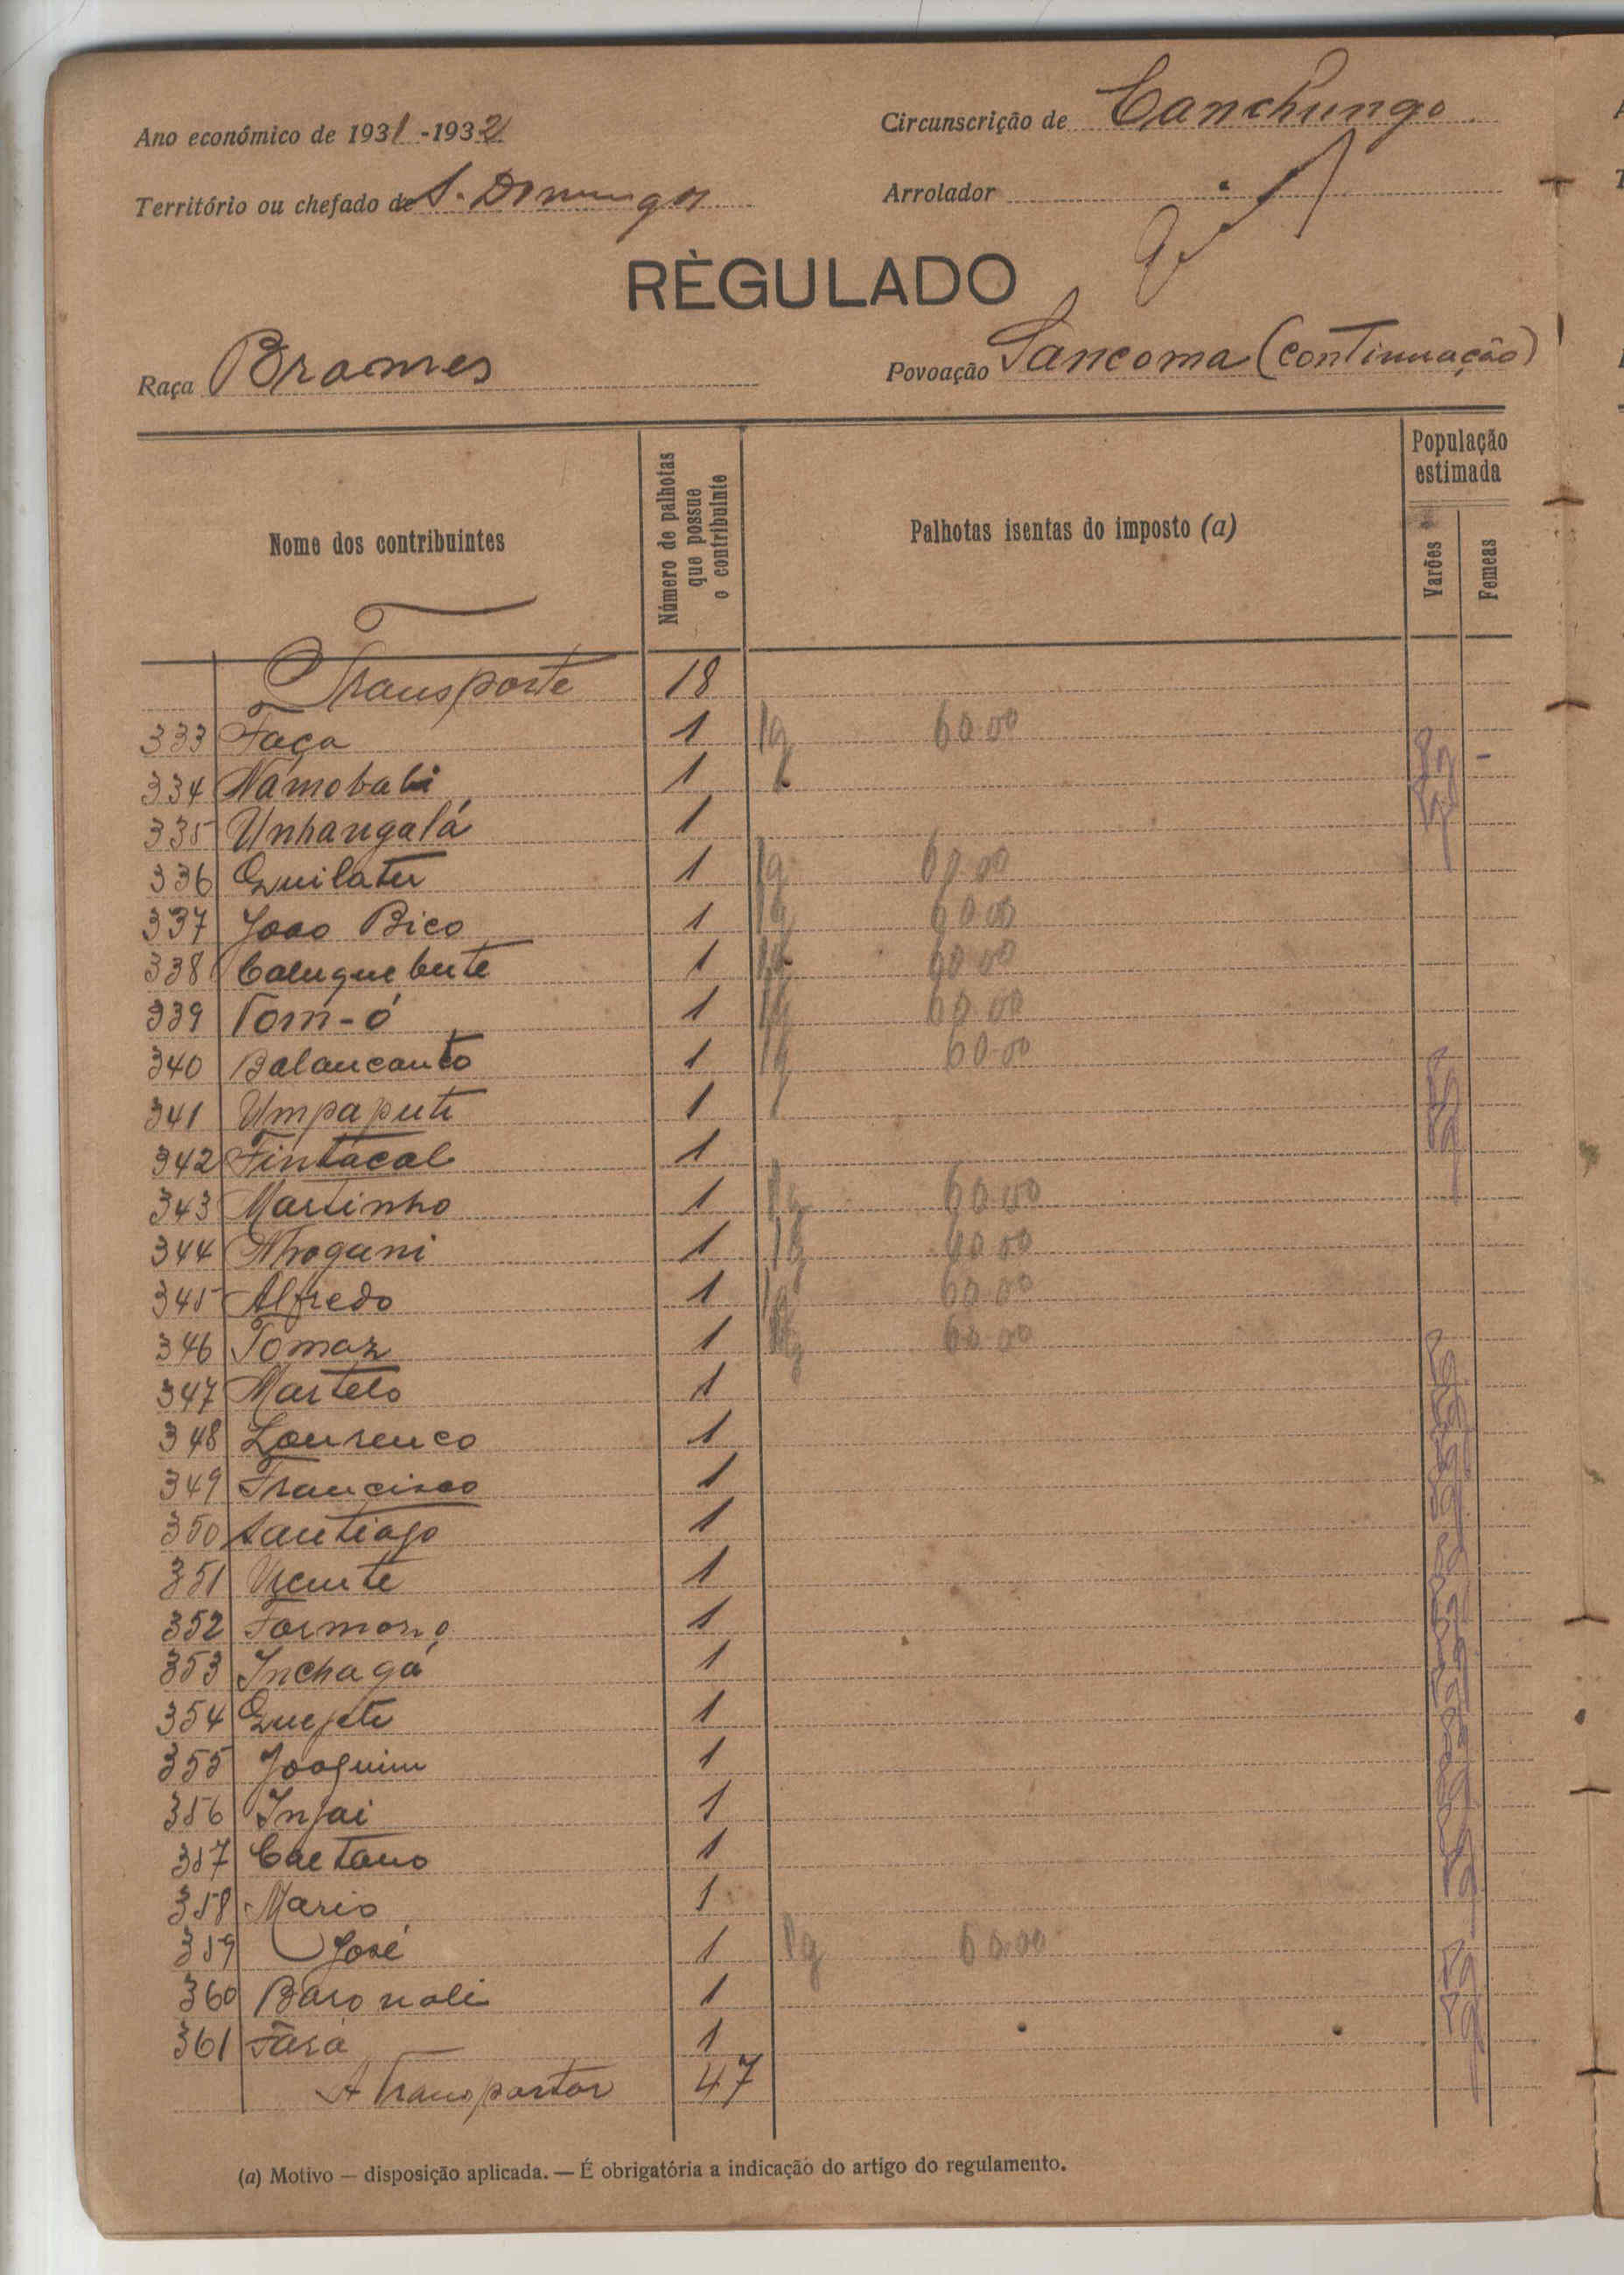 Ano económico de 1931-1932
Circunscrição de Canchungo
Território ou chefado de S. Domingos
Arrolador
RÈGULADO
Raça Brames
Povoação Sancoma (continuação)
Nome dos contribuintes
Número de palhotas que possue o contribuinte
Palhotas isentas do imposto (a)
População estimada
Varões
Femeas
Transporte 18
333 Faça 1 Pg 60.00
334 Namobabi 1
335 Unhangalá 1
336 Quilate 1 Pg 60.00
337 Joao Bico 1 Pg 60.00
338 1 Pg 60.00
339 Tom-ó 1 Pg 60.00
340 Balancanto 1 Pg 60.00
341 Umpaputi 1
342 Fintacal 1
343 Martinho 1 Pg 60.00
344 Nhogani 1 Pg 60.00
345 Alfredo 1 Pg 60.00
346 Tomaz 1 Pg 60.00
347 Martelo 1
348 Lourenco 1
349 Francisco 1
350 Santiago 1
351 Vicente 1
352 Formoso 1
353 Inchagá 1
354 1
355 Joaquim 1
356 Injai 1
357 Caetano 1
358 Mario 1
359 José 1 Pg 60.00
360 Baronali 1
361 Fará 1
A Transportar 47
(a) Motivo — disposição aplicada. — É obrigatória a indicação do artigo do regulamento.